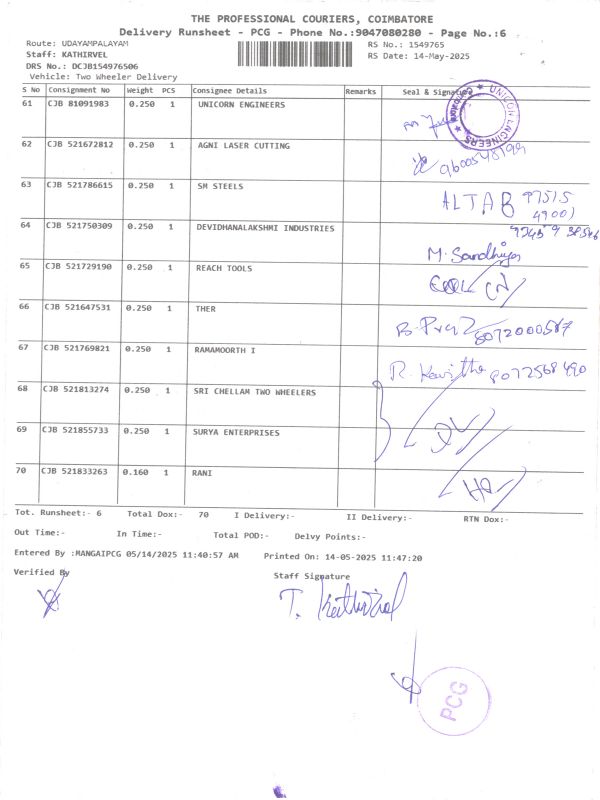 THE PROFESSIONAL COURIERS, COIMBATORE
Delivery Runsheet - PCG - Phone No.:9047080280 - Page No.:6
Route: UDAYAMPALAYAM RS No.: 1549765
Staff: KATHIRVEL RS Date: 14-May-2025
DRS No.: DCJB154976506
Vehicle: Two Wheeler Delivery
S No Consignment No Weight PCS Consignee Details Remarks Seal & Signature
61 CJB 81091983 0.250 1 UNICORN ENGINEERS
UNICORN ENGINEERS
62 CJB 521672812 0.250 1 AGNI LASER CUTTING
63 CJB 521786615 0.250 1 SM STEELS ALTAB 97515
49001
64 CJB 521750309 0.250 1 DEVIDHANALAKSHMI INDUSTRIES
M. Sandhiya
65 CJB 521729190 0.250 1 REACH TOOLS
66 CJB 521647531 0.250 1 THER
8072000567
67 CJB 521769821 0.250 1 RAMAMOORTH I R. Kavitha 8072568490
68 CJB 521813274 0.250 1 SRI CHELLAM TWO WHEELERS
69 CJB 521855733 0.250 1 SURYA ENTERPRISES
70 CJB 521833263 0.160 1 RANI
Tot. Runsheet:- 6 Total Dox:- 70 I Delivery:- II Delivery:- RTN Dox:-
Out Time:- In Time:- Total POD:- Delvy Points:-
Entered By :MANGAIPCG 05/14/2025 11:40:57 AM Printed On: 14-05-2025 11:47:20
Verified By Staff Signature
T. Kathirvel
PCG